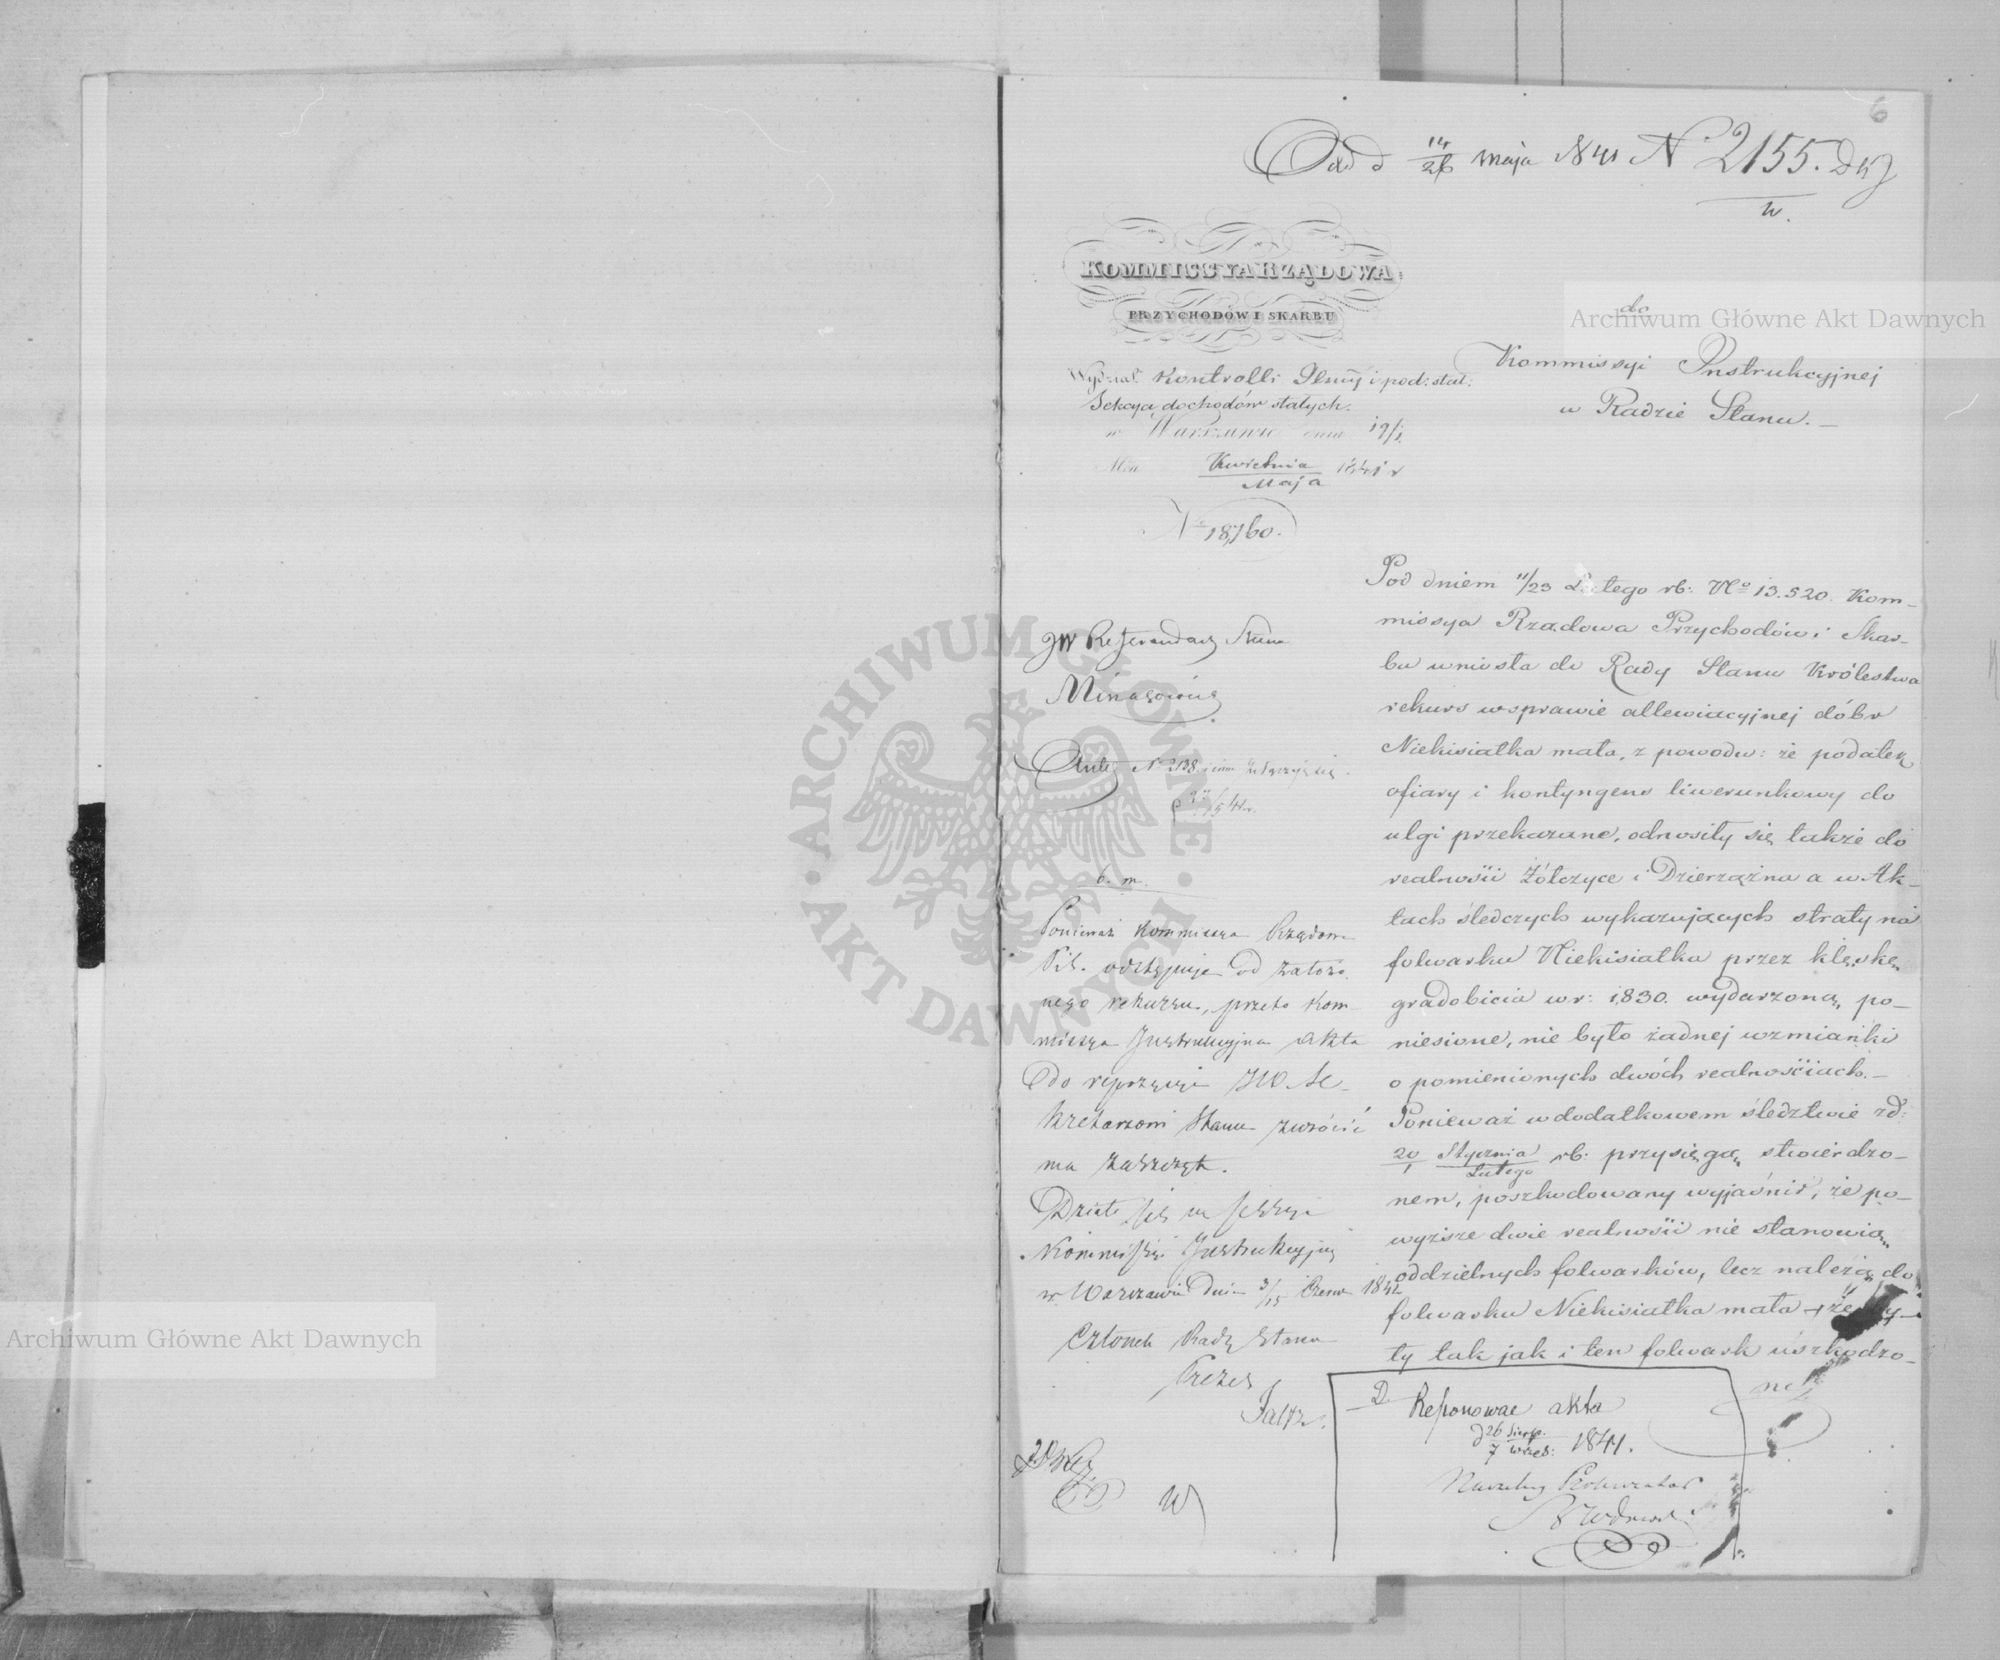 6
14/26 maja 1841 N 2155. DKJ
w.
KOMMISSYA RZĄDOWA
PRZYCHODÓW I SKARBU
Wydział Kontrolli i pod: stał:
Sekcya dochodów stałych.
w Warszawie dnia 19/1
Kwietnia/Maja 1841 r
No 18,760.
do
Kommissyi Instrukcyjnej
w Radzie Stanu.
JW Referendarz Stanu
N 2138
6. m.
Ponieważ Kommissya Rządowa
odstępuje od założo
nego rekursu, przeto Kom
missya Instrukcyjna akta
do JW. Se
kretarzowi Stanu zwrócić
ma zaszczyt.
Działo się na sessyi
Kommissyi Instrukcyjnej
w Warszawie dnia 3/15 Czerw 1841
Członek Rady Stanu
Prezes
Pod dniem 11/23 Lutego rb: No 13.520. Kom-
missya Rządowa Przychodów i Skar-
bu wniosła do Rady Stanu Królestwa
rekurs w sprawie allewiacyjnej dóbr
Niekisiałka mała, z powodu: że podatek
ofiary i kontyngens liwerunkowy do
ulgi przekazane, odnosiły się także do
realności Żółczyce i Dzierzążna a w Ak-
tach śledczych wykazujących straty na
folwarku Niekisiałka przez klęskę
gradobicia w r: 1830. wydarzoną po-
niesione, nie było żadnej wzmianki
o pomienionych dwóch realnościach.—
Ponieważ w dodatkowem śledztwie zd:
20/1 Stycznia/Lutego rb: przysięgą stwierdzo-
nem, poszkodowany wyjaśnił, że po-
wyższe dwie realności nie stanowią
oddzielnych folwarków, lecz należą do
folwarku Niekisiałka mała i że
ty tak jak i ten folwark uszkodzo-
ne
D. Reponować akta
d 26 Sierp./7 wrześ: 1841.
Naczelny Prokurator
Archiwum Główne Akt Dawnych
Archiwum Główne Akt Dawnych
ARCHIWUM GŁÓWNE
AKT DAWNYCH